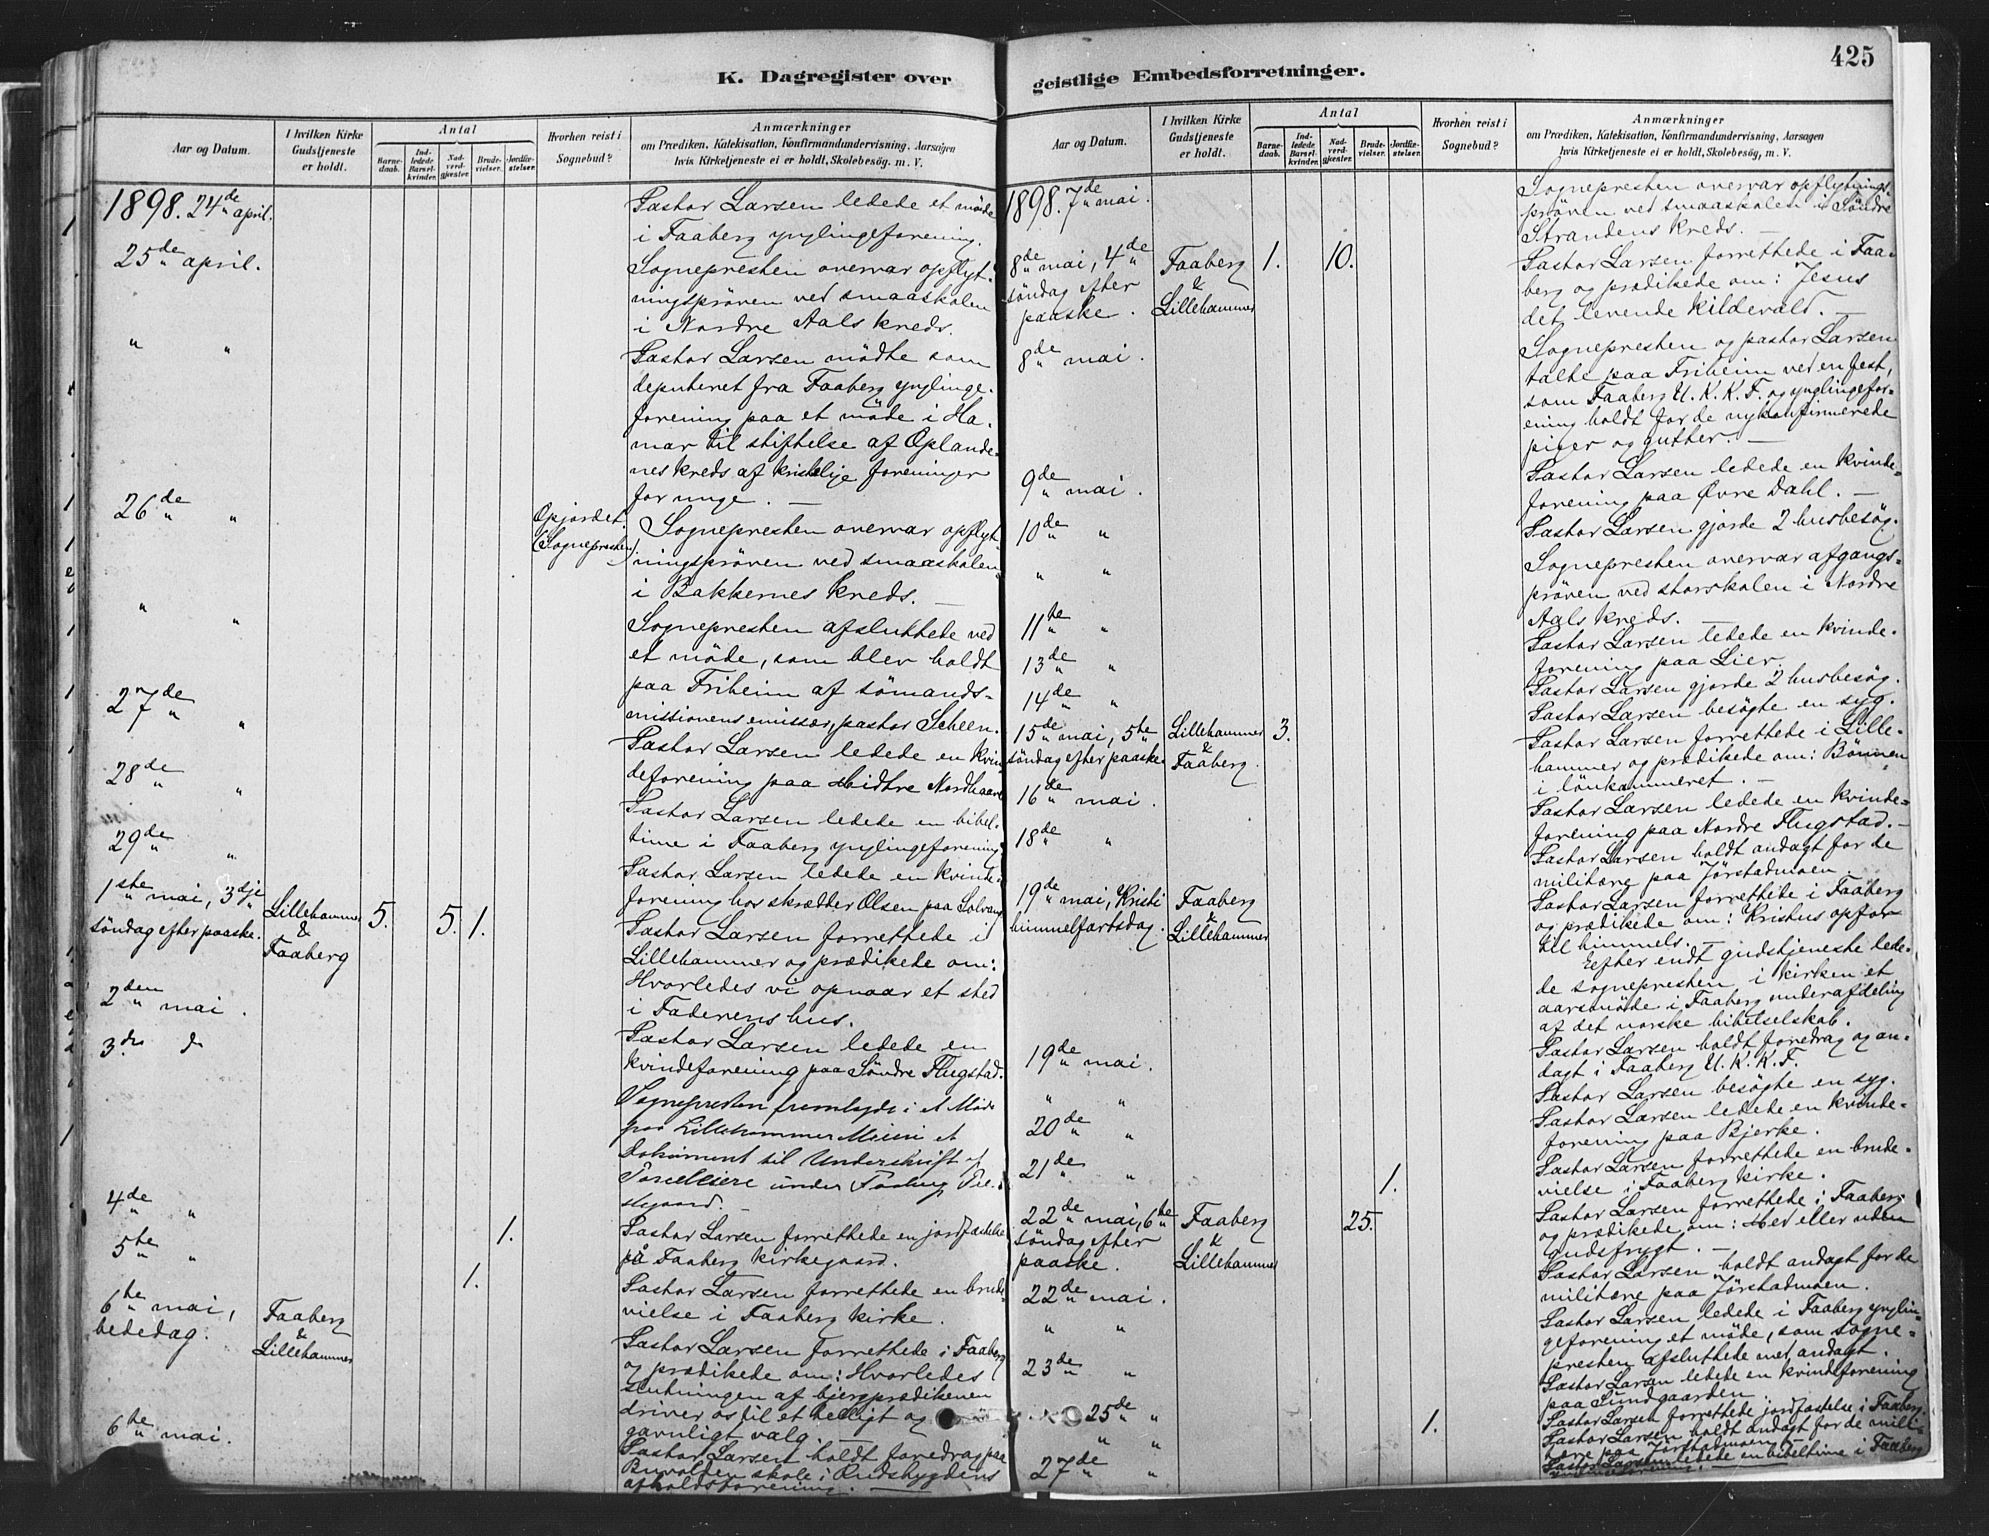 K. Dagregister over
Aar og Datum.
I hvilken Kirke Gudstjeneste er holdt.
Antal
Barnedaab.
Indledede Barselkvinder.
Nadverdgjester.
Brudevielser.
Jordfæstelser.
Hvorhen reist i Sognebud?
Anmærkninger
om Prædiken, Katekisation, Konfirmandundervisning, Aarsagen
hvis Kirketjeneste ei er holdt, Skolebesøg, m. V.
1898. 24de april.
Pastor Larsen ledede et møde
i Faaberg ynglingeforening.
25de april.
Sognepresten overvar opflyt-
ningsprøven ved smaaskolen
i Nordre Aals kreds.
" "
Pastor Larsen mødte som
deputeret fra Faaberg ynglinge-
forening paa et møde i Ha-
mar til stiftelse af Oplande-
nes kreds af kristelige foreninger
for unge. —
26de "
Opjordet.
(Sognepresten)
Sognepresten overvar opflyt-
ningsprøven ved smaaskolen
i Bakkernes kreds. —
" "
Sognepresten afsluttede ved
et møde, som blev holdt
paa Friheim af sømands-
missionens emissær, pastor Scheen.
27de "
Pastor Larsen ledede en kvin-
deforening paa Midtre Nordhaave
28de "
Pastor Larsen ledede en bibel-
time i Faaberg ynglingeforening
29de "
Pastor Larsen ledede en kvinde-
forening hos skrædder Olsen paa Solvang
1ste mai, 3dje
søndag efter paaske.
Lillehammer
&
Faaberg
5. 5. 1.
Pastor Larsen forrettede i
Lillehammer og prædikede om:
Hvorledes vi opnaar et sted
i Faderens hus.
2den mai.
Pastor Larsen ledede en
kvindeforening paa Søndre Flugstad.
3die do
Sognepresten fremlagde i et Møde
paa Lillehammer Meieri et
Dokument til Underskrift af
under Faaberg Pre-
stegaard.
4de "
1.
Pastor Larsen forrettede en jordfæstelse
på Faaberg kirkegaard.
5te "
1.
Pastor Larsen forrettede en brude-
vielse i Faaberg kirke.
6te mai,
bededag.
Faaberg
&
Lillehammer
Pastor Larsen forrettede i Faaberg
og prædikede om: Hvorledes
slutningen af bjergprædikenen
driver os til et helligt og
gavnligt valg. —
6te mai.
Pastor Larsen holdt foredrag paa
skole i Rudsbygdens
afholdsforening. —
geistlige Embedsforretninger.
425
Aar og Datum.
I hvilken Kirke Gudstjeneste er holdt.
Antal
Barnedaab.
Indledede Barselkvinder.
Nadverdgjester.
Brudevielser.
Jordfæstelser.
Hvorhen reist i Sognebud?
Anmærkninger
om Prædiken, Katekisation, Konfirmandundervisning, Aarsagen
hvis Kirketjeneste ei er holdt, Skolebesøg, m. V.
1898. 7de mai.
Sognepresten overvar opflytnings-
prøven ved smaaskolen i Søndre
Strandens kreds. —
8de mai, 4de
søndag efter
paaske.
Faaberg
&
Lillehammer
1. 10.
Pastor Larsen forrettede i Faa-
berg og prædikede om: Jesus
det levende kildevæld. —
8de mai.
Sognepresten og pastor Larsen
talte paa Friheim ved en fest,
som Faaberg U. K. K. F. og ynglingefor-
ening holdt for de nykonfirmerede
piger og gutter. —
9de mai.
Pastor Larsen ledede en kvinde-
forening paa Øvre Dahl. —
10de "
Pastor Larsen gjorde 2 husbesøg.
" "
Sognepresten overvar afgangs-
prøven ved storskolen i Nordre
Aals kreds. —
11te "
Pastor Larsen ledede en kvinde-
forening paa Lier.
13de "
Pastor Larsen gjorde 2 husbesøg.
14de "
Pastor Larsen besøgte en syg.
15de mai, 5te
søndag efter paaske.
Lillehammer
&
Faaberg.
3.
Pastor Larsen forrettede i Lille-
hammer og prædikede om: Bønnen
i lønkammeret. —
16de mai.
Pastor Larsen ledede en kvinde-
forening paa Nordre Flugstad. —
18de "
Pastor Larsen holdt andagt for de
militære paa Jørstadmoen
19de mai, Kristi
himmelfartsdag.
Faaberg
&
Lillehammer
Pastor Larsen forrettede i Faaberg
og prædikede om: Kristus opfor
til himmels.
Eefter endt gudstjeneste lede-
de sognepresten i kirken et
aarsmøde i Faaberg underafdeling
af det norske bibelselskab.
19de mai.
Pastor Larsen holdt foredrag og an-
dagt i Faaberg U. K. K. F.
" "
Pastor Larsen besøgte en syg.
20de "
Pastor Larsen ledede en kvinde-
forening paa Bjerke.
21de "
1.
Pastor Larsen forrettede en brude-
vielse i Faaberg kirke.
22de mai, 6te
søndag efter
paaske.
Faaberg
&
Lillehammer
25.
Pastor Larsen forrettede i Faaberg
og prædikede om: Med eller uden
gudsfrygt. —
22de mai.
Pastor Larsen holdt andagt for de
militære paa Jørstadmoen.
" "
Pastor Larsen ledede i Faaberg ynglin-
geforening et møde, som sogne-
presten afsluttede med andagt.
23de "
Pastor Larsen ledede en kvindeforening
paa Sundgaarden
25de "
1.
Pastor Larsen forrettede jordfæstelse i Faaberg.
" "
Pastor Larsen holdt andagt for de mili-
tære paa Jørstadmoen
27de "
Pastor Larsen ledede en bibeltime i Faaberg
ynglingeforening.